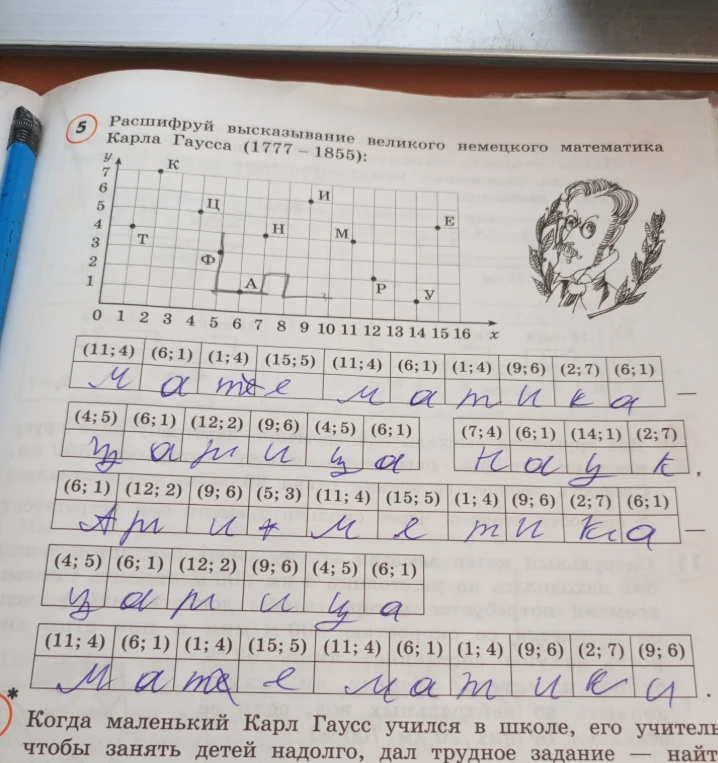 5 Расшифруй высказывание великого немецкого математика
Карла Гаусса (1777 – 1855):
y
7 К
6 И
5 Ц Е
4 Т Н М
3 Ф
2 А Р
1 У
0 1 2 3 4 5 6 7 8 9 10 11 12 13 14 15 16 x
(11; 4) (6; 1) (1; 4) (15; 5) (11; 4) (6; 1) (1; 4) (9; 6) (2; 7) (6; 1)
м а т е м а т и к а —
(4; 5) (6; 1) (12; 2) (9; 6) (4; 5) (6; 1) (7; 4) (6; 1) (14; 1) (2; 7)
ц а р и ц а н а у к ,
(6; 1) (12; 2) (9; 6) (5; 3) (11; 4) (15; 5) (1; 4) (9; 6) (2; 7) (6; 1)
А р и ф м е т и к а —
(4; 5) (6; 1) (12; 2) (9; 6) (4; 5) (6; 1)
ц а р и ц а
(11; 4) (6; 1) (1; 4) (15; 5) (11; 4) (6; 1) (1; 4) (9; 6) (2; 7) (9; 6)
м а т е м а т и к и .
* Когда маленький Карл Гаусс учился в школе, его учитель
чтобы занять детей надолго, дал трудное задание — найт